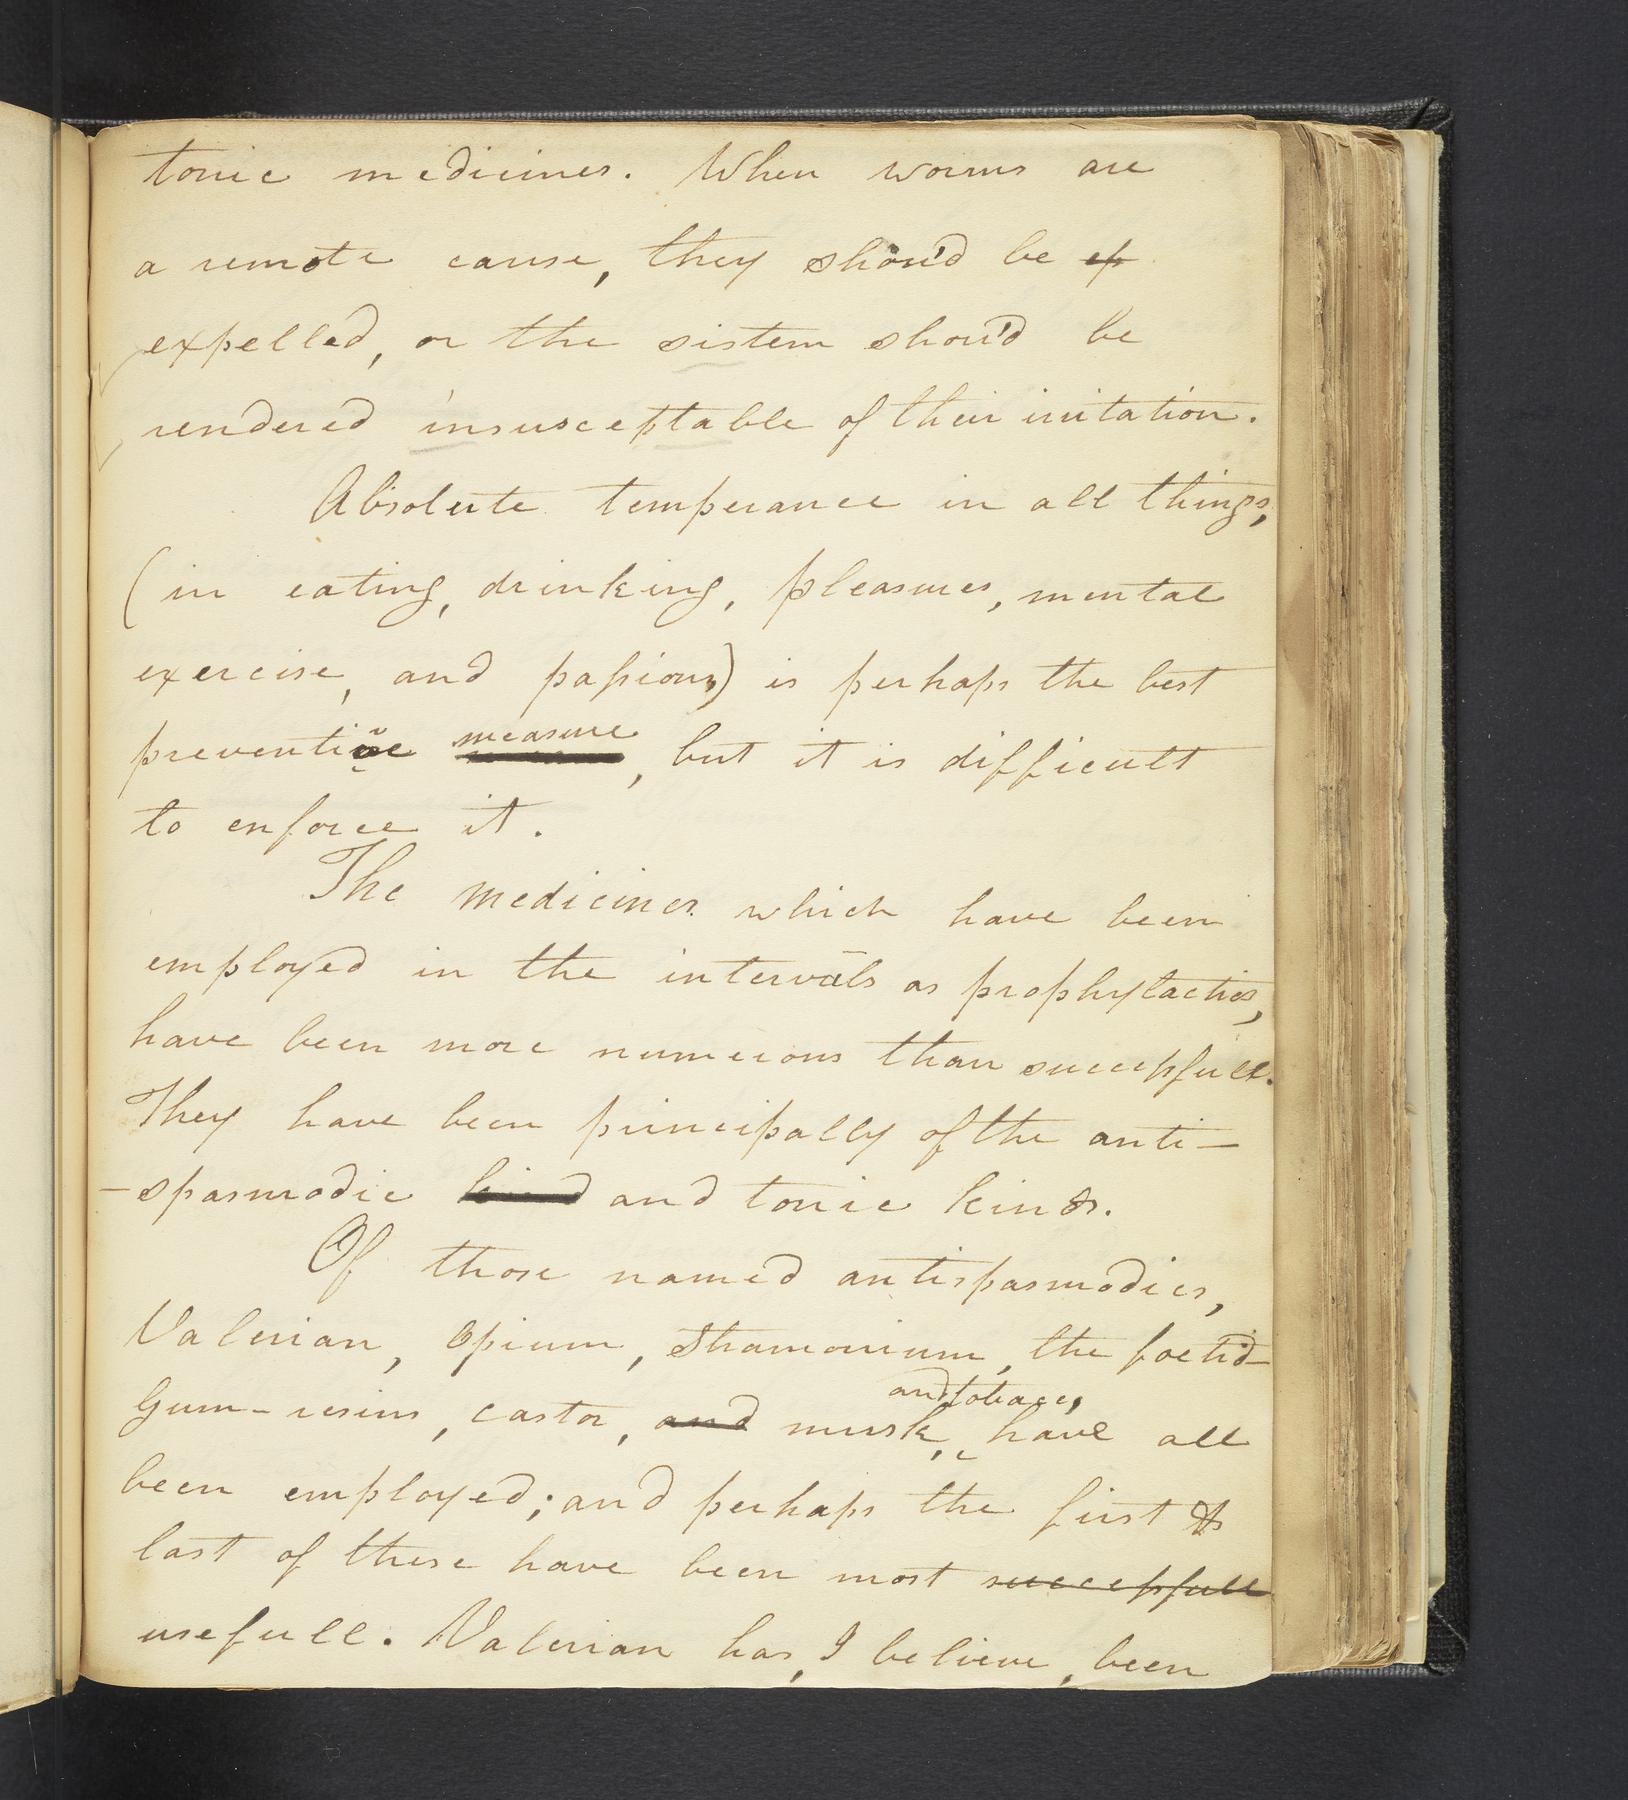 tonic medicines. When worms are
a remote cause, they shou'd be ex
expelled, or the sistem shou'd be
rendered insusceptable of their irritation.
Absolute temperance in all things,
(in eating, drinking, pleasures, mental
exercise, and paſsions) is perhaps the best
measure
preventive, but it is difficult
to enforce it.
The medicines which have been
employed in the intervals as prophylactics,
have been more numerous than succeſsfull.
They have been principally of the anti-
-spasmodic kind and tonic kinds.
Of those named antispasmodics,
Valerian, Opium, Stramonium, the foetid
and tobacco,
Gum-resins, castor, and musk, have all
been employed; and perhaps the first &
last of these have been most succeſsfull
usefull. Valerian has, I believe, been